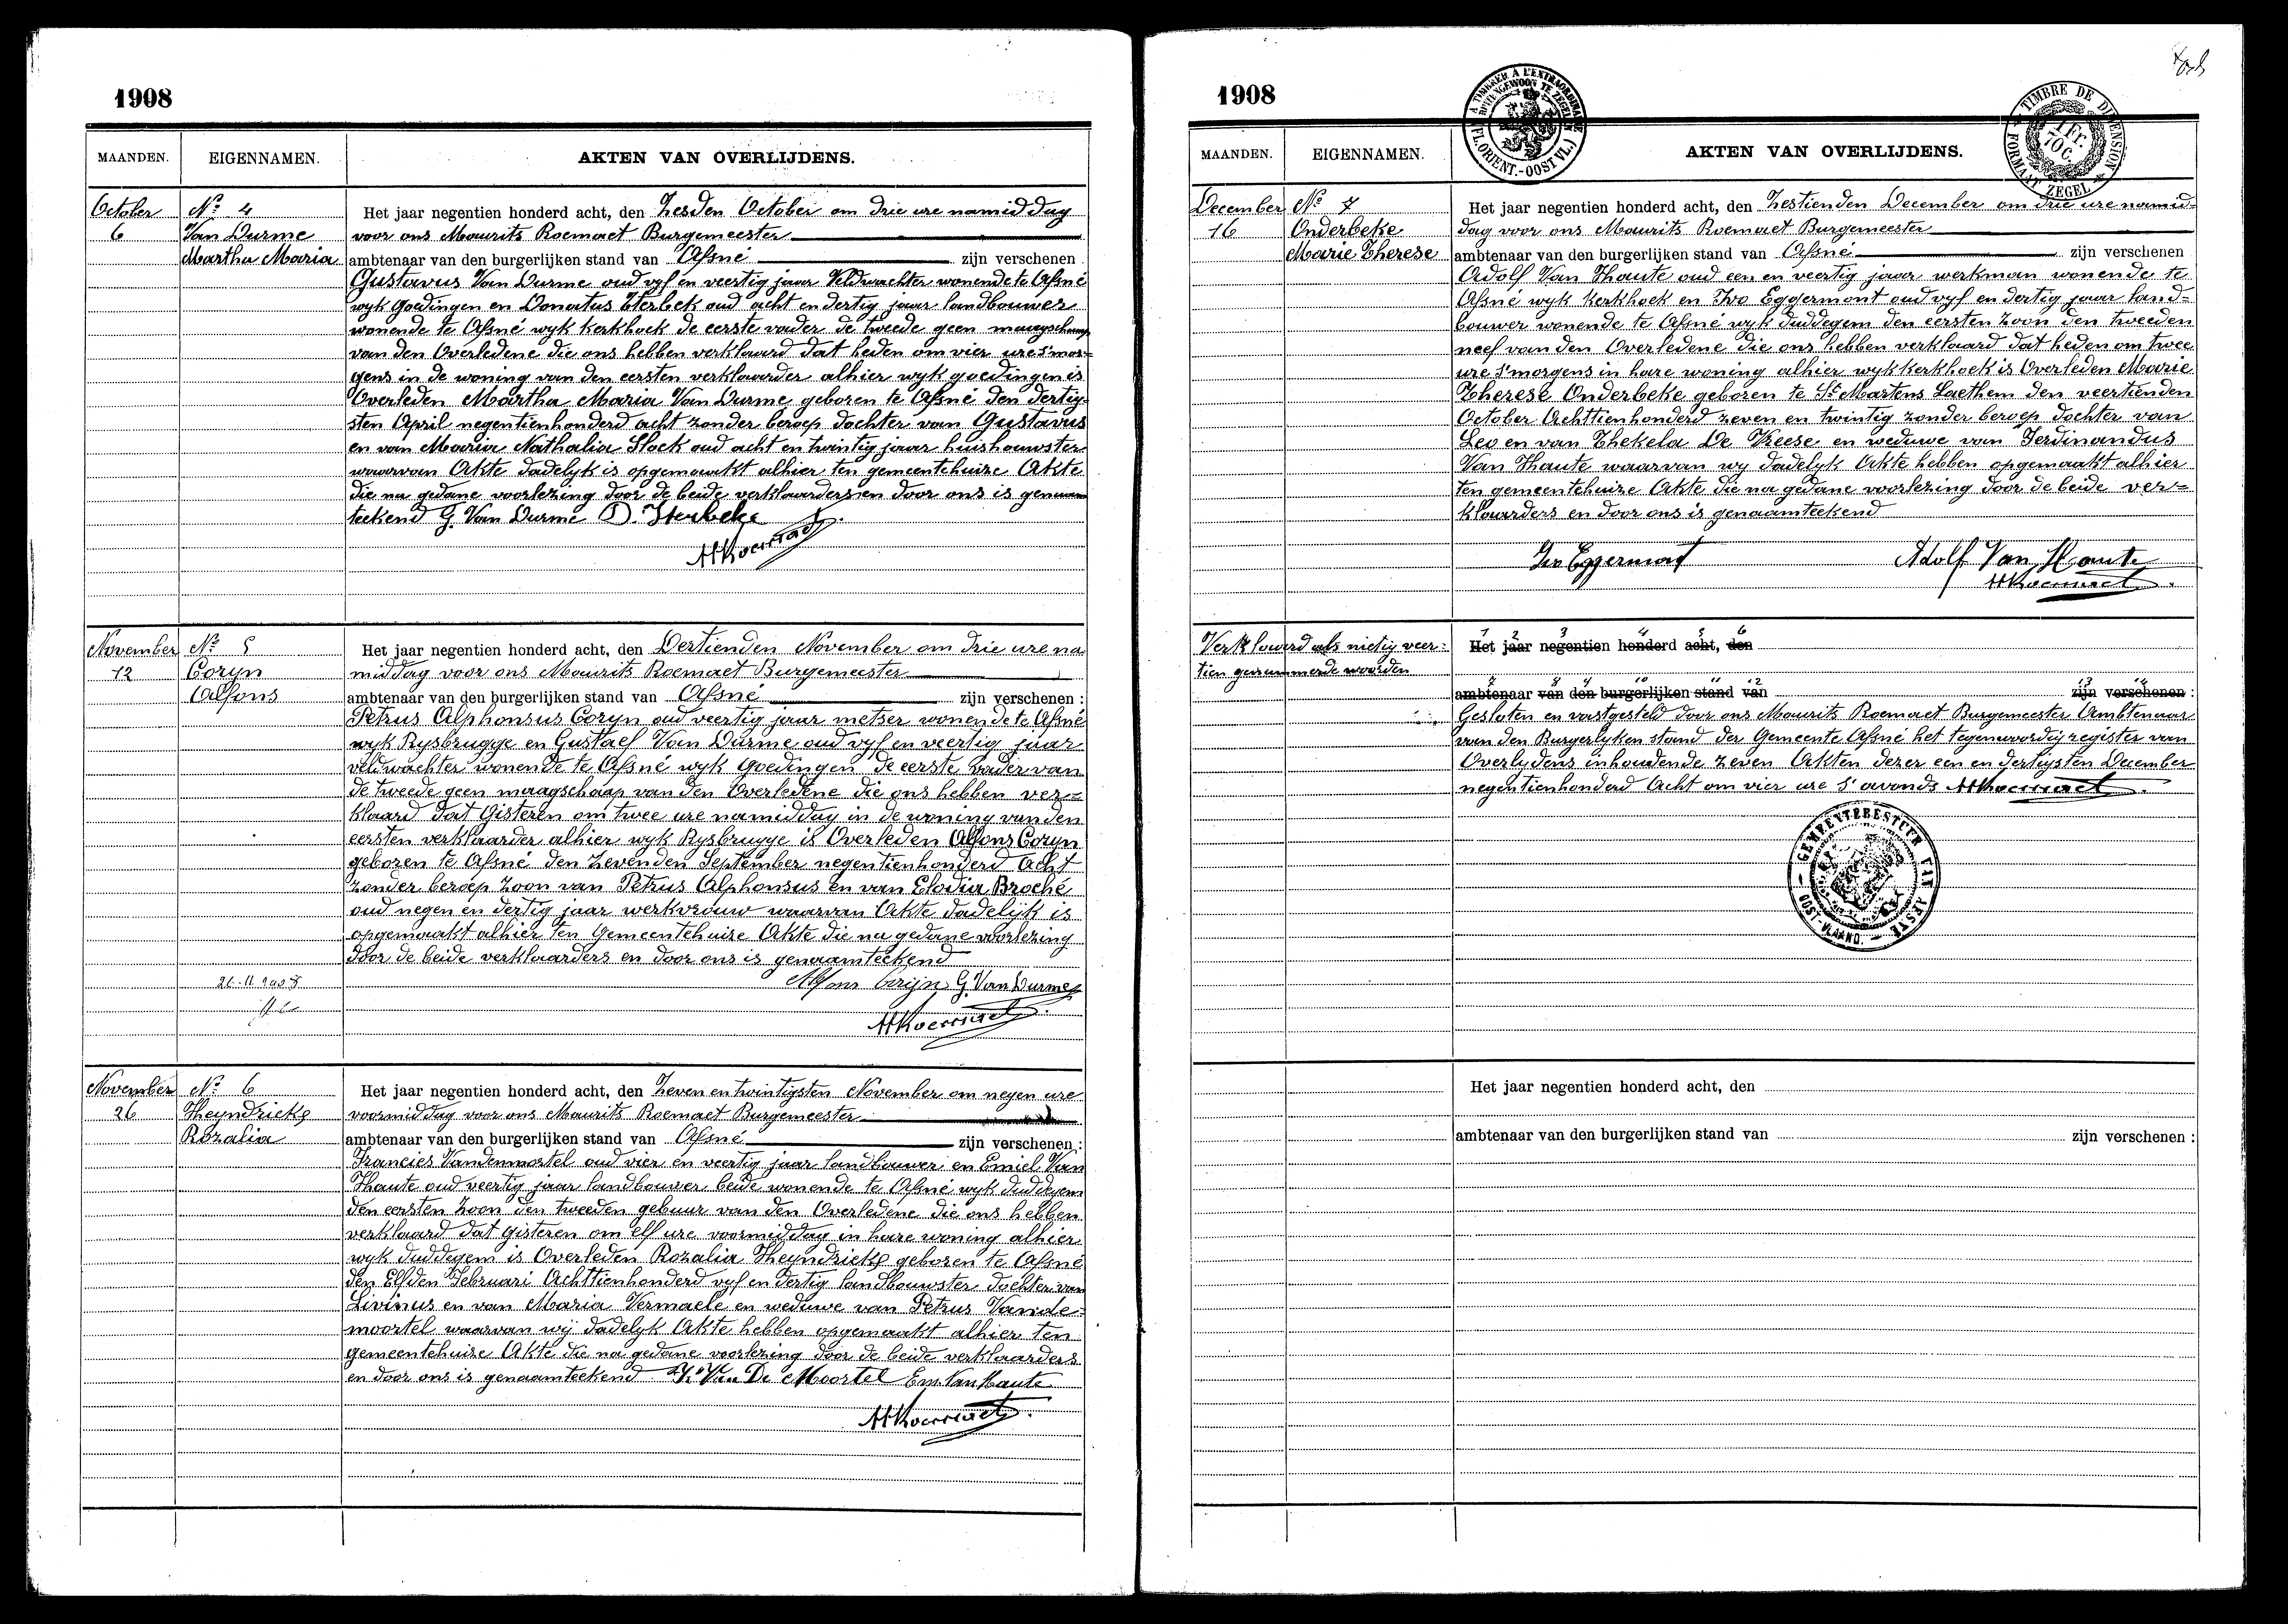 1908
MAANDEN. EIGENNAMEN. AKTEN VAN OVERLIJDENS.
October
6
Nº 4
Van Durme
Martha Maria
Het jaar negentien honderd acht, den Zesden October om drie ure namiddag
voor ons Maurits Roemaet Burgemeester
ambtenaar van den burgerlijken stand van Afsné zijn verschenen
Gustavus Van Durme oud vyf en veertig jaar Veldwachter wonende te Afsné
wyk Goedingen en Donatus Sterbek oud acht en dertig jaar landbouwer
wonende te Afsné wyk kerkhoek de eerste vader de tweede geen maagschap
van den Overledene die ons hebben verklaard dat heden om vier ure s'mor=
gens in de woning van den eersten verklaarder alhier wyk goedingen is
Overleden Martha Maria Van Durme geboren te Afsné den dertig-
sten April negentienhonderd acht zonder beroep dochter van Gustavus
en van Maria Nathalia Slock oud acht en twintig jaar huishouwster
waarvan Akte dadelyk is opgemaakt alhier ten gemeentehuize Akte
die na gedane voorlezing door de beide verklaarders en door ons is genaam
teekend G. Van Durme D. Sterbeke
MRoemaet
November
12
Nº 5
Coryn
Alfons
Het jaar negentien honderd acht, den Dertienden November om drie ure na
middag voor ons Maurits Roemaet Burgemeester
ambtenaar van den burgerlijken stand van Afsné zijn verschenen :
Petrus Alphonsus Coryn oud veertig jaar metser wonende te Afsné
wyk Rysbrugge en Gustaef Van Durme oud vyf en veertig jaar
veldwachter wonende te Afsné wyk Goedingen de eerste vader van
de tweede geen maagschap van den Overledene die ons hebben ver=
klaard dat Gisteren om twee ure namiddag in de woning van den
eersten verklaarder alhier wyk Rysbrugge is Overleden Alfons Coryn
geboren te Afsné den zevenden September negentienhonderd Acht
zonder beroep zoon van Petrus Alphonsus en van Elodia Broché
oud negen en dertig jaar werkvrouw waarvan Akte dadelijk is
opgemaakt alhier ten Gemeentehuize Akte die na gedane voorlezing
door de beide verklaarders en door ons is genaamteekend
26-11-1908
Alfons Corijn G. Van Durme
MRoemaet
November
26
Nº 6
Heyndrickx
Rozalia
Het jaar negentien honderd acht, den Zeven en twintigsten November om negen ure
voormiddag voor ons Maurits Roemaet Burgemeester
ambtenaar van den burgerlijken stand van Afsné zijn verschenen :
Francies Vandemoortel oud vier en veertig jaar landbouwer en Emiel Van
Haute oud veertig jaar landbouwer beide wonende te Afsné wyk duddegem
den eersten zoon den tweeden gebuur van den Overledene die ons hebben
verklaard dat gisteren om elf ure voormiddag in hare woning alhier
wyk duddegem is Overleden Rozalia Heyndrickx geboren te Afsné
den Elfden Februari Achttienhonderd vyf en dertig landbouwster dochter van
Livinus en van Maria Vermaele en weduwe van Petrus Vande=
moortel waarvan wij dadelyk Akte hebben opgemaakt alhier ten
gemeentehuize Akte die na gedane voorlezing door de beide verklaarders
en door ons is genaamteekend Van De Moortel Em. Van Haute
MRoemaet
1908
A TIMBRER A L'EXTRAORDINAIRE
BUITENGEWOON TE ZEGELEN
(FL. ORIENT.-OOST VL.)
TIMBRE DE DIMENSION
1 Fr. 70 C.
FORMAAT ZEGEL
MAANDEN. EIGENNAMEN. AKTEN VAN OVERLIJDENS.
December
16
Nº 7
Onderbeke
Marie Therese
Het jaar negentien honderd acht, den Zestienden December om drie ure namid=
dag voor ons Maurits Roemaet Burgemeester
ambtenaar van den burgerlijken stand van Afsné zijn verschenen
Adolf Van Haute oud een en veertig jaar werkman wonende te
Afsné wyk kerkhoek en Ivo Eggermont oud vyf en dertig jaar land=
bouwer wonende te Afsné wyk duddegem den eersten zoon den tweeden
neef van den Overledene die ons hebben verklaard dat heden om twee
ure s'morgens in hare woning alhier wyk kerkhoek is Overleden Marie
Therese Onderbeke geboren te St Martens Laethem den veertienden
October Achttienhonderd zeven en twintig zonder beroep dochter van
Leo en van Thekela De Vreese en weduwe van Ferdinandus
Van Haute waarvan wy dadelyk Akte hebben opgemaakt alhier
ten gemeentehuize Akte die na gedane voorlezing door de beide ver=
klaarders en door ons is genaamteekend
Ivo Eggermont Adolf Van Haute
MRoemaet
Verklaard als nietig veer=
tien genummerde woorden
1 2 3 4 5 6
Het jaar negentien honderd acht, den
7 8 9 10 11 12 13 14
ambtenaar van den burgerlijken stand van zijn verschenen :
Gesloten en vastgesteld door ons Maurits Roemaet Burgemeester Ambtenaar
van den Burgerlyken stand der Gemeente Afsné het tegenwoordig register van
Overlydens inhoudende zeven Akten dezer een en dertigsten December
negentienhonderd Acht om vier ure s'avonds MRoemaet
GEMEENTEBESTUUR VAN AFSNÉ
OOST-VLAAND.
Het jaar negentien honderd acht, den
ambtenaar van den burgerlijken stand van zijn verschenen :